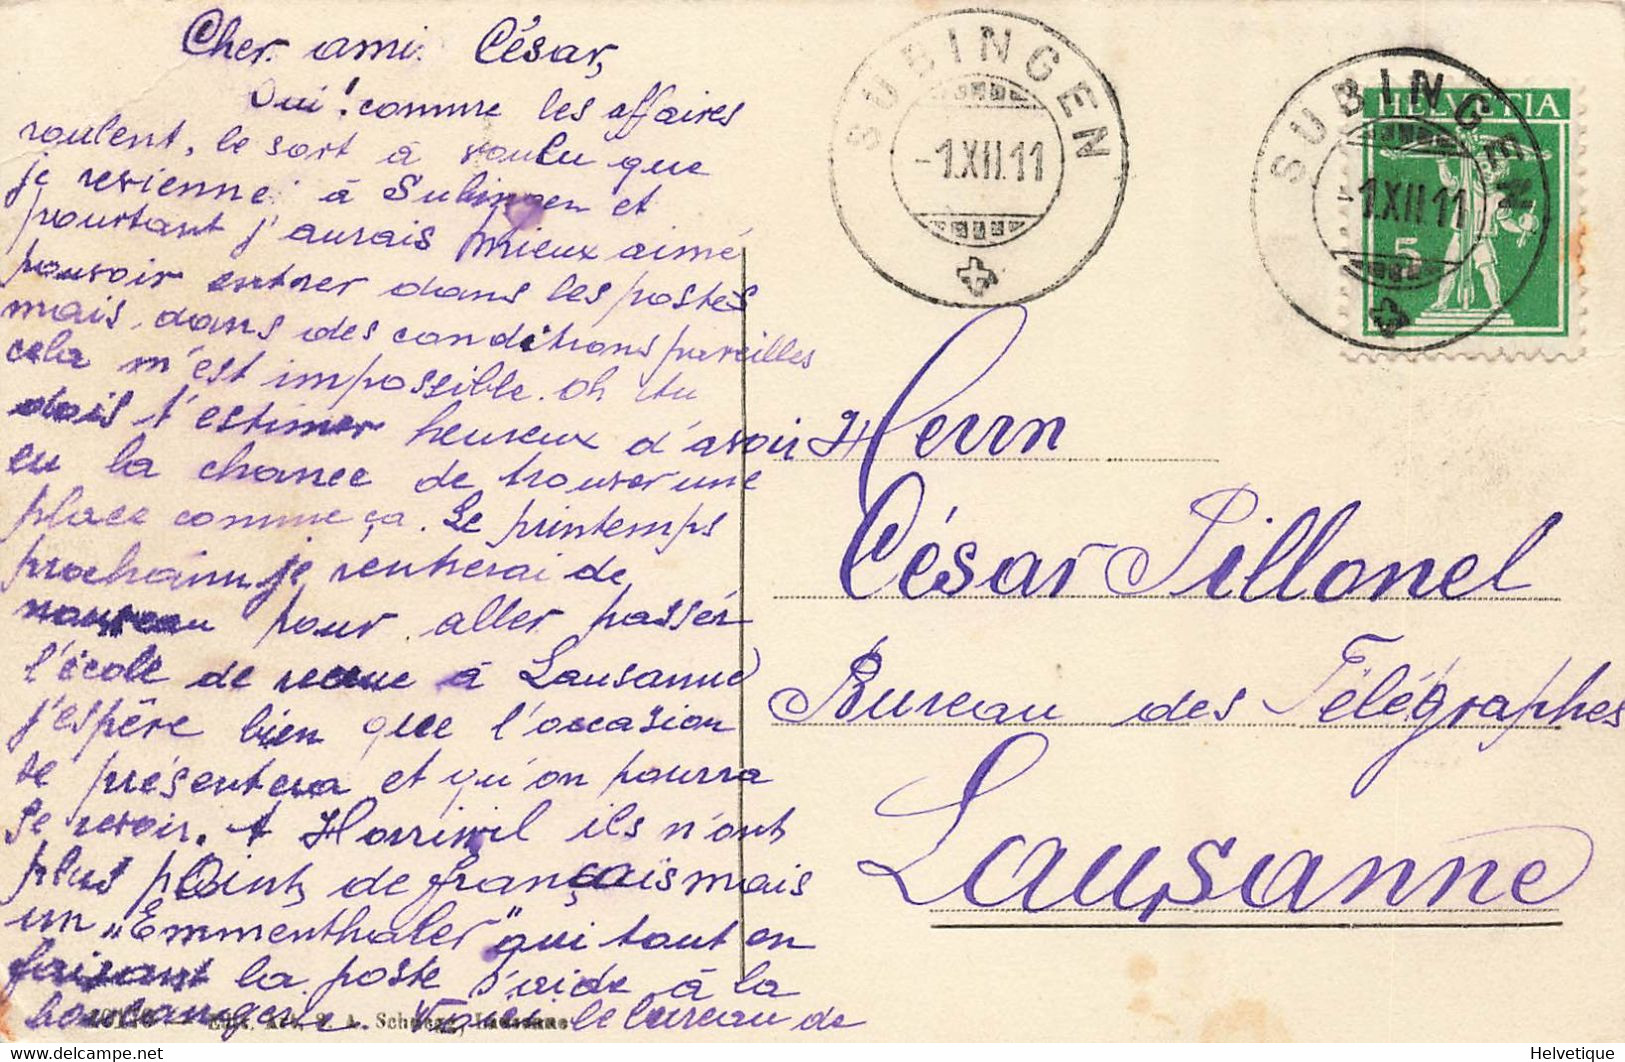 Cher ami César,
Oui! comme les affaires
roulent, le sort à voulu que
je revienne à Subingen et
pourtant j'aurais mieux aimé
pouvoir entrer dans les postes
mais, dans des conditions pareilles
cela m'est impossible. Oh tu
dois t'estimer heureux d'avoir
eu la chance de trouver une
place comme ça. Le printemps
prochain je rentrerai de
nouveau pour aller passer
l'école de recrue à Lausanne
j'espère bien que l'occasion
se présentera et qu'on pourra
se revoir. A Horriwil ils n'ont
plus point de français mais
un „Emmenthaler" qui tout en
faisant la poste s'aide à la
boulangerie. Voici le bureau de
S. A. Schnegg, Lausanne
SUBINGEN
-1.XII.11
SUBINGEN
-1.XII.11
HELVETIA
5
Herrn
César Pillonel
Bureau des Télégraphes
Lausanne
Helvetique
delcampe.net